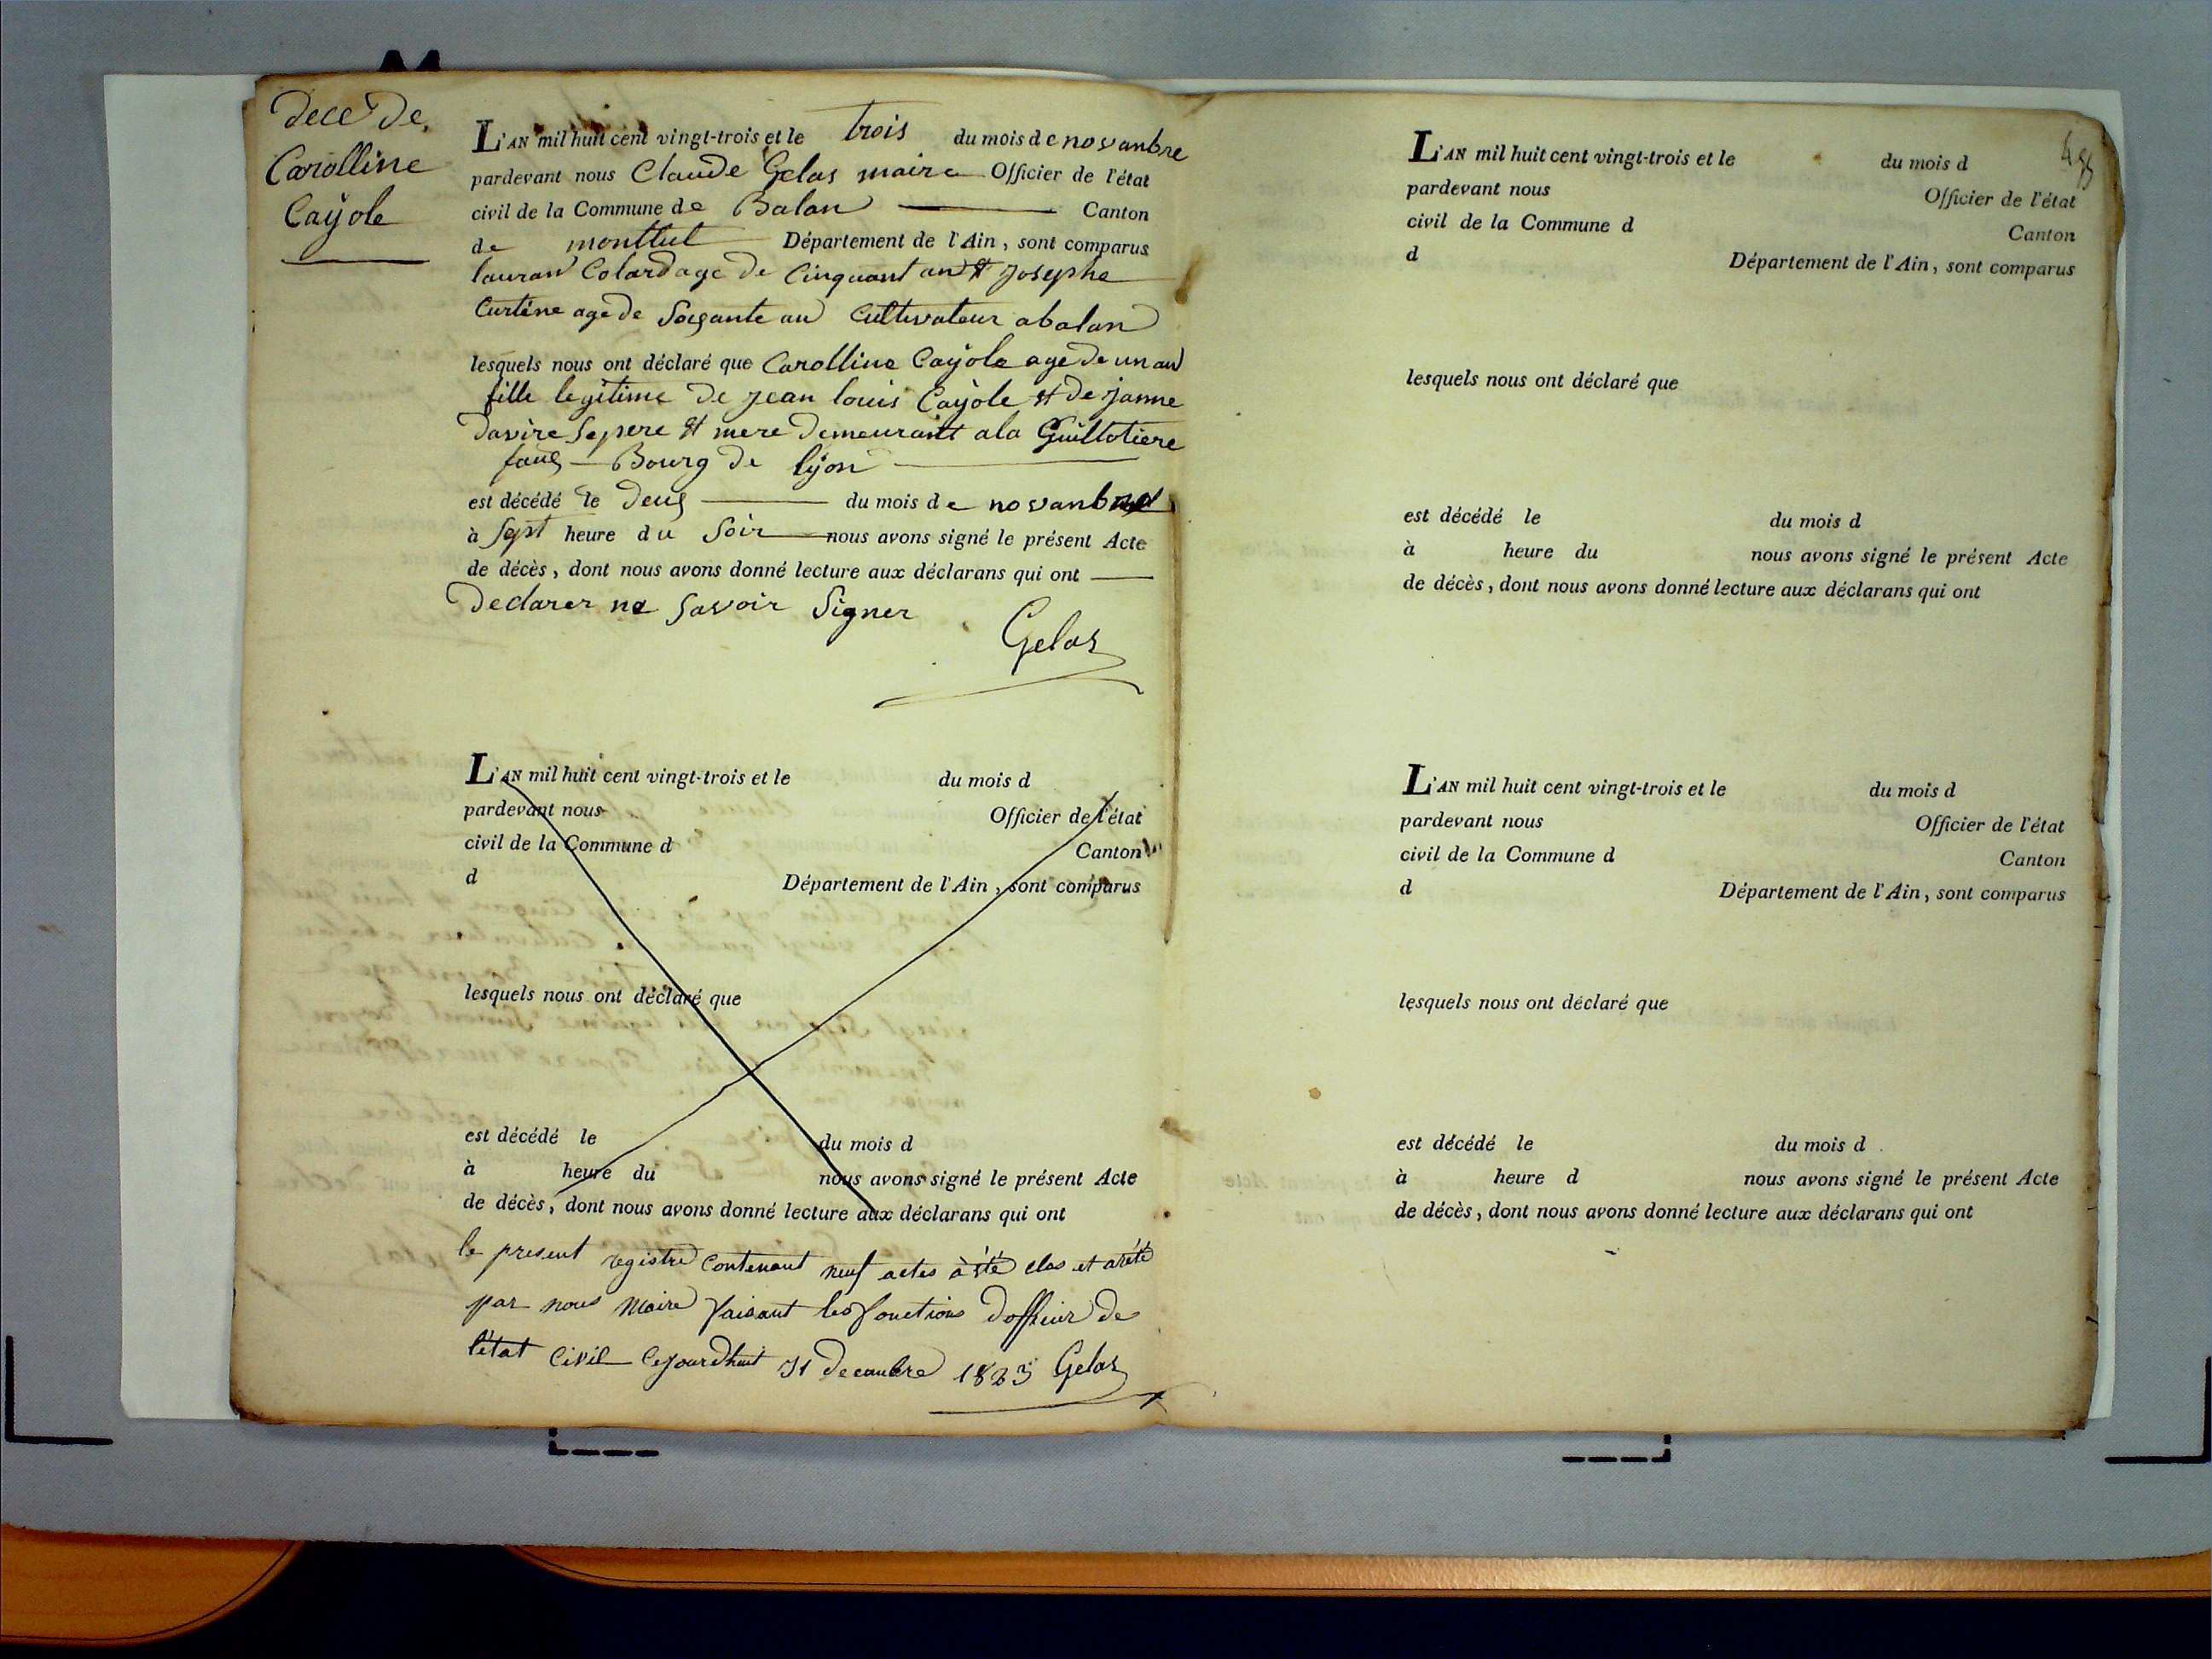 Dece De
Carolline
Cayole
L'AN mil huit cent vingt-trois et le trois du mois de novanbre
pardevant nous Claude Gelas maire Officier de l'état
civil de la Commune de Balan Canton
de montluel Département de l'Ain, sont comparus
lauran Colard age de Cinquant an et Josephe
Curtine age de Soisante an Cultivateur abalan
lesquels nous ont déclaré que Carolline Cayole age de un an
fille legitime de jean louis Cayole et de janne
davire Sepere et mere demeurant ala Guillotiere
faus Bourg de lyon
est décédé le deus du mois de novanbre
à Sept heure du Soir nous avons signé le présent Acte
de décès, dont nous avons donné lecture aux déclarans qui ont
declarer ne Savoir Signer
Gelas
L'AN mil huit cent vingt-trois et le du mois d
pardevant nous Officier de l'état
civil de la Commune d Canton
d Département de l'Ain, sont comparus
lesquels nous ont déclaré que
est décédé le du mois d
à heure du nous avons signé le présent Acte
de décès, dont nous avons donné lecture aux déclarans qui ont
le present registre Contenant neuf actes à été clos et arété
par nous Maire faisant les fonctions dofficier de
létat Civil Cejourdhuit 31 decanbre 1823 Gelas
L'AN mil huit cent vingt-trois et le du mois d
pardevant nous Officier de l'état
civil de la Commune d Canton
d Département de l'Ain, sont comparus
lesquels nous ont déclaré que
est décédé le du mois d
à heure du nous avons signé le présent Acte
de décès, dont nous avons donné lecture aux déclarans qui ont
L'AN mil huit cent vingt-trois et le du mois d
pardevant nous Officier de l'état
civil de la Commune d Canton
d Département de l'Ain, sont comparus
lesquels nous ont déclaré que
est décédé le du mois d
à heure d nous avons signé le présent Acte
de décès, dont nous avons donné lecture aux déclarans qui ont